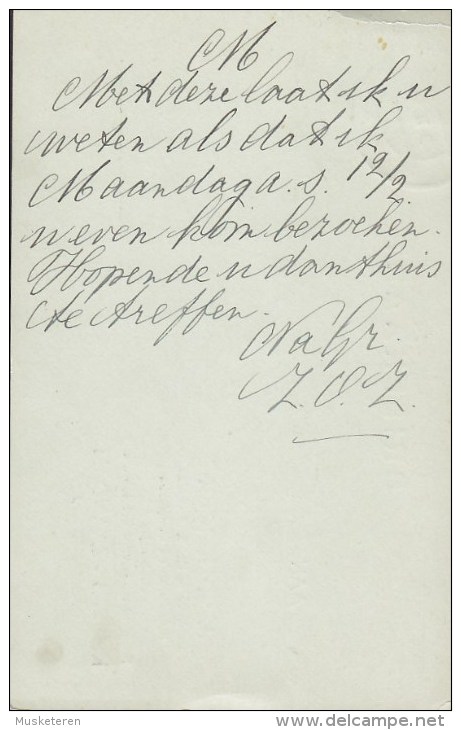 M
Met deze laat ik u
weten als dat ik
Maandag a.s. 12/2
u even kom bezoeken.
Hopende u dan thuis
te treffen.
Na Gr.
Z.O.Z.
Musketeren
www.delcampe.net